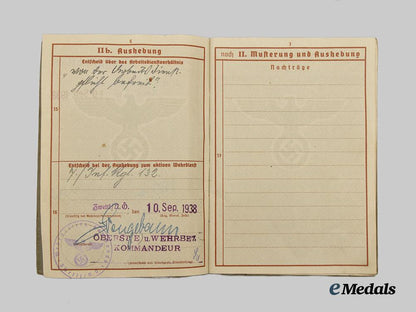 6
II b. Aushebung
Entscheid über das Arbeitsdienstverhältnis
"von der Arbeitsdienst-
pflicht befreit."
15
Entscheid bei der Aushebung zum aktiven Wehrdienst
7./Inf. Rgt. 132.
16
Zwettl N.D.
den
10. Sep. 1938
OBERST u. WEHRBEZ.
KOMMANDEUR
7
noch II. Musterung und Aushebung
Nachträge
eMedals